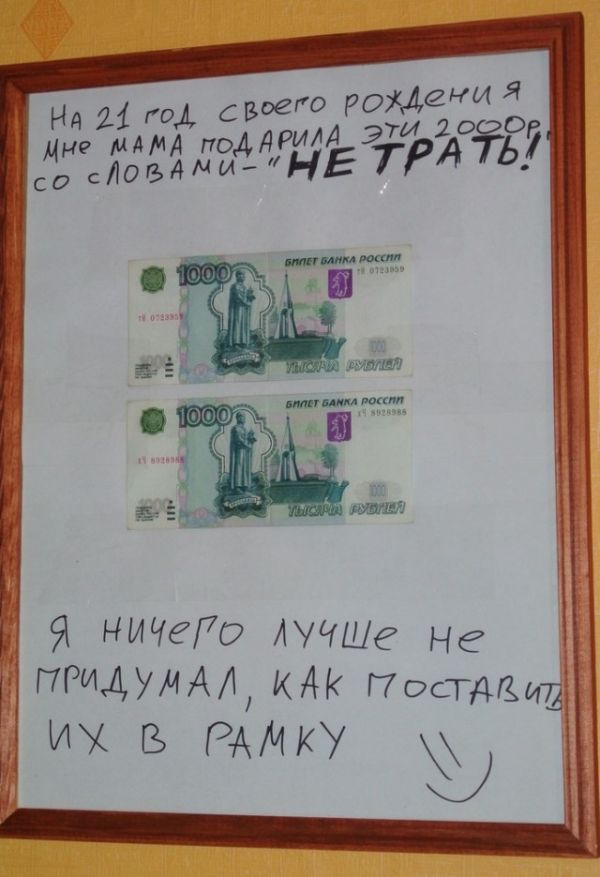 На 21 год своего рождения
мне мама подарила эти 2000р.
со словами – "НЕ ТРАТЬ!"
БИЛЕТ БАНКА РОССИИ
1000
тИ 0723959
тИ 0723959
1000
1000
ТЫСЯЧА РУБЛЕЙ
БИЛЕТ БАНКА РОССИИ
1000
хЧ 8928988
хЧ 8928988
1000
1000
ТЫСЯЧА РУБЛЕЙ
Я НИЧЕГО ЛУЧШЕ НЕ
ПРИДУМАЛ, КАК ПОСТАВИТЬ
ИХ В РАМКУ